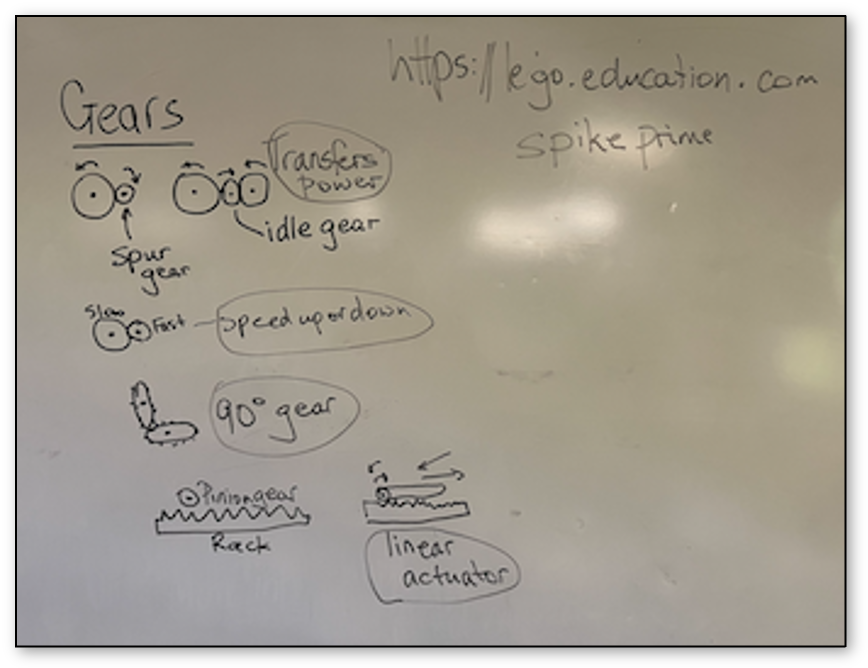 https://lego.education.com
spike prime
Gears
Transfers
power
idle gear
Spur
gear
Slow
Fast
Speed up or down
90° gear
Pinion gear
Rack
linear
actuator